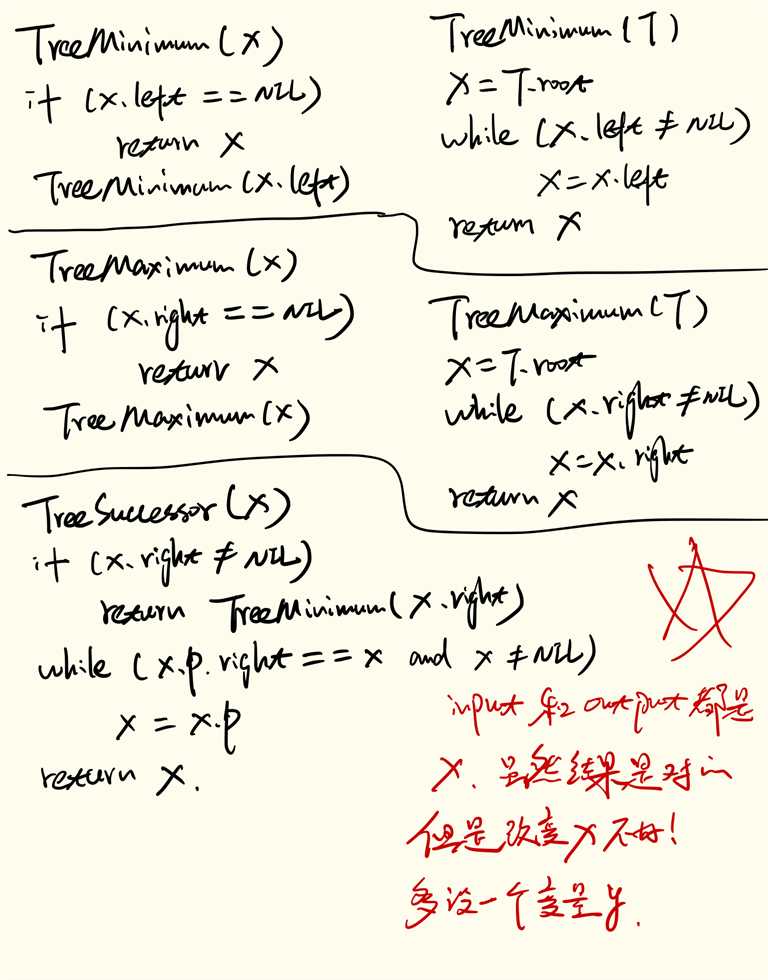 TreeMinimum(x)
if (x.left == NIL)
return x
TreeMinimum(x.left)
TreeMinimum(T)
x = T.root
while (x.left ≠ NIL)
x = x.left
return x
TreeMaximum(x)
if (x.right == NIL)
return x
TreeMaximum(x)
TreeMaximum(T)
x = T.root
while (x.right ≠ NIL)
x = x.right
return x
TreeSuccessor(x)
if (x.right ≠ NIL)
return TreeMinimum(x.right)
while (x.p.right == x and x ≠ NIL)
x = x.p
return x.
input 和 output 都是
x. 虽然结果是对的
但是改变x不好!
多设一个变量y.